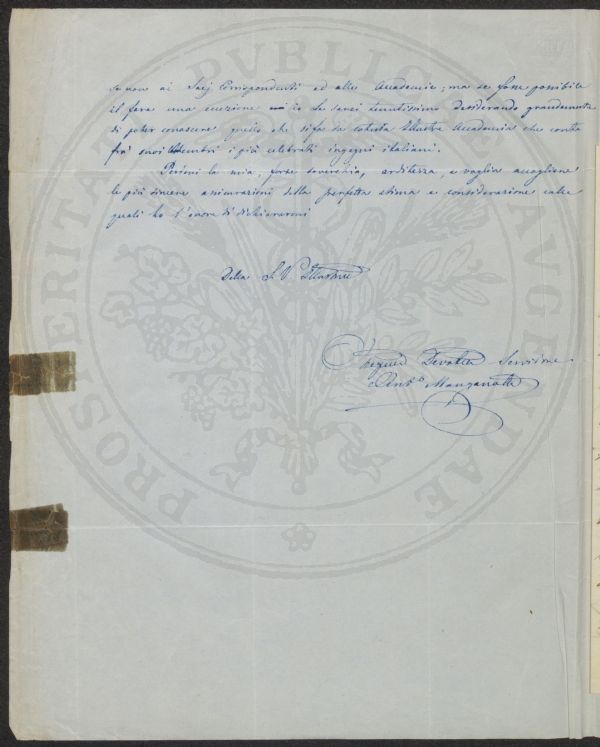 PROSPERITATI PUBLICAE AUGENDAE
se non ai Socj Corrispondenti ed alle Accademie; ma se fosse possibile
il fare una eccezione io Le sarei tenutissimo desiderando grandemente
di poter conoscere quello che si fa da cotesta Illustre Accademia che conta
fra suoi Membri i più celebrati ingegni italiani.
Perdoni la mia, forse soverchia, arditezza, e voglia accogliere
le più sincere assicurazioni della perfetta stima e considerazione colle
quali ho l'onore di dichiararmi
Della S. V. Illustre
Devoto Servitore
Anto Manganotti